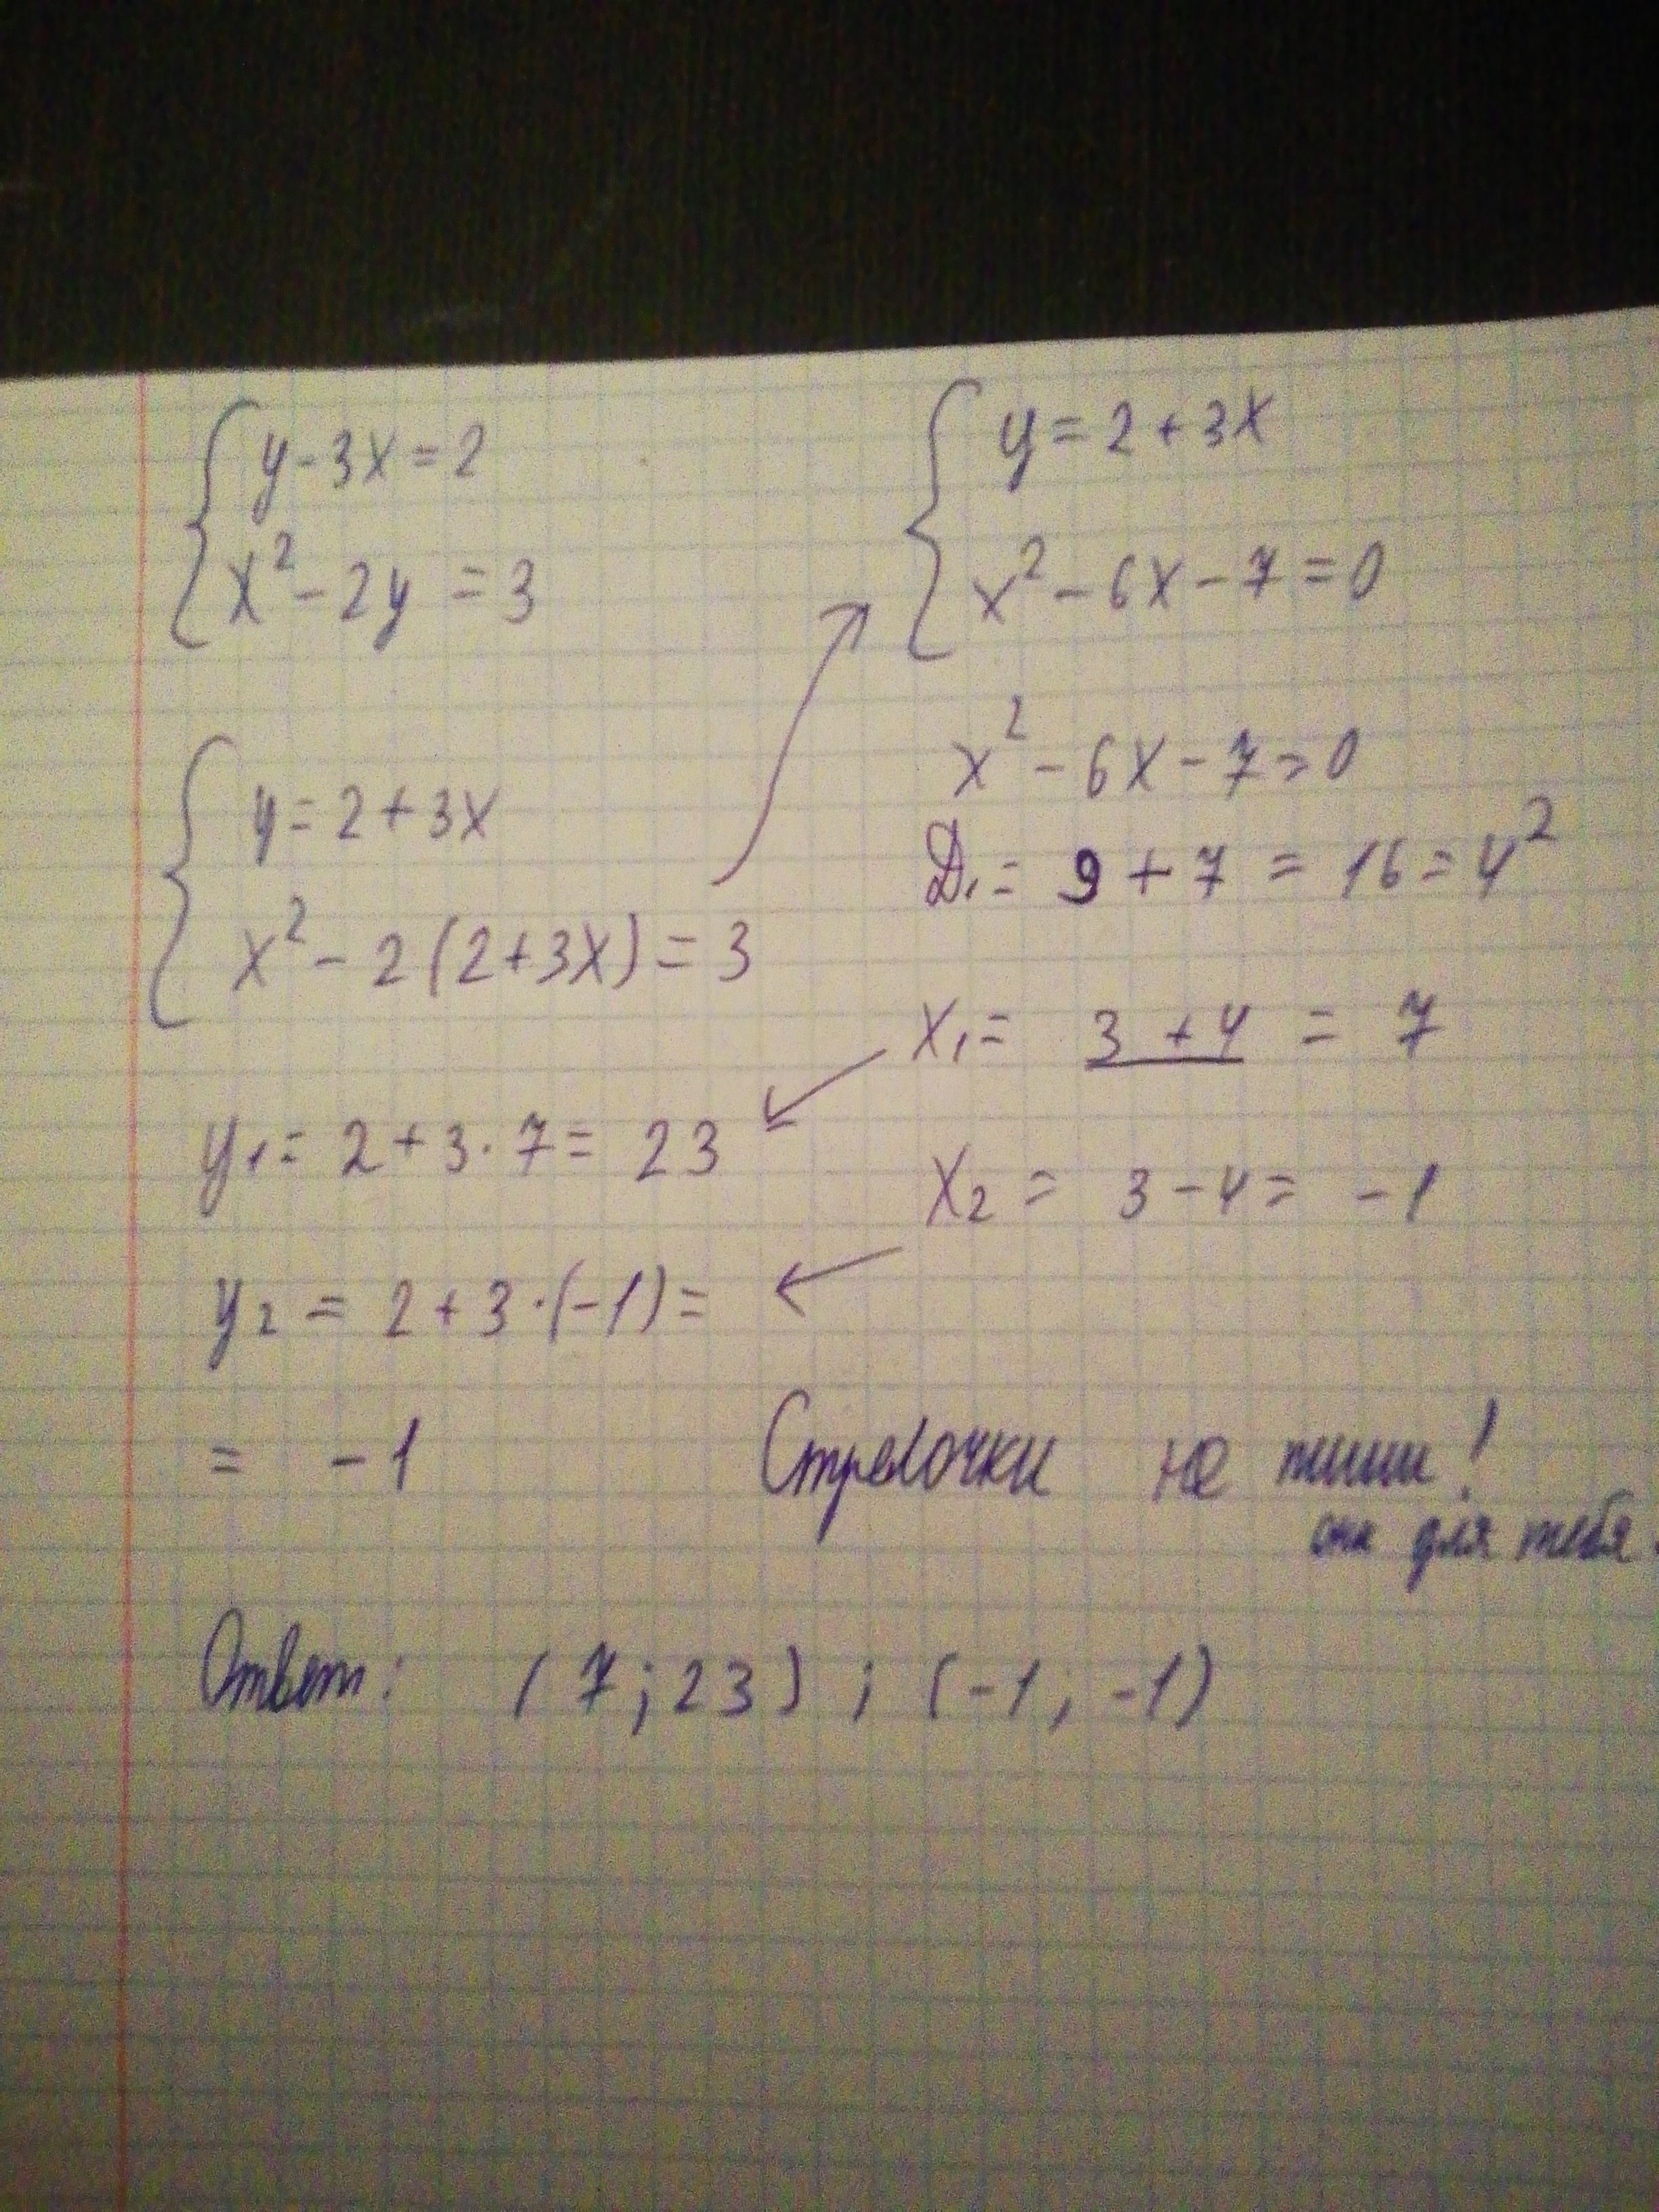 y-3x=2
x²-2y=3
y=2+3x
x²-2(2+3x)=3
y=2+3x
x²-6x-7=0
x²-6x-7=0
D₁=9+7=16=4²
x₁=3+4=7
x₂=3-4=-1
y₁=2+3·7=23
y₂=2+3·(-1)=
=-1
Стрелочки не пиши!
они для тебя.
Ответ: (7;23);(-1;-1)